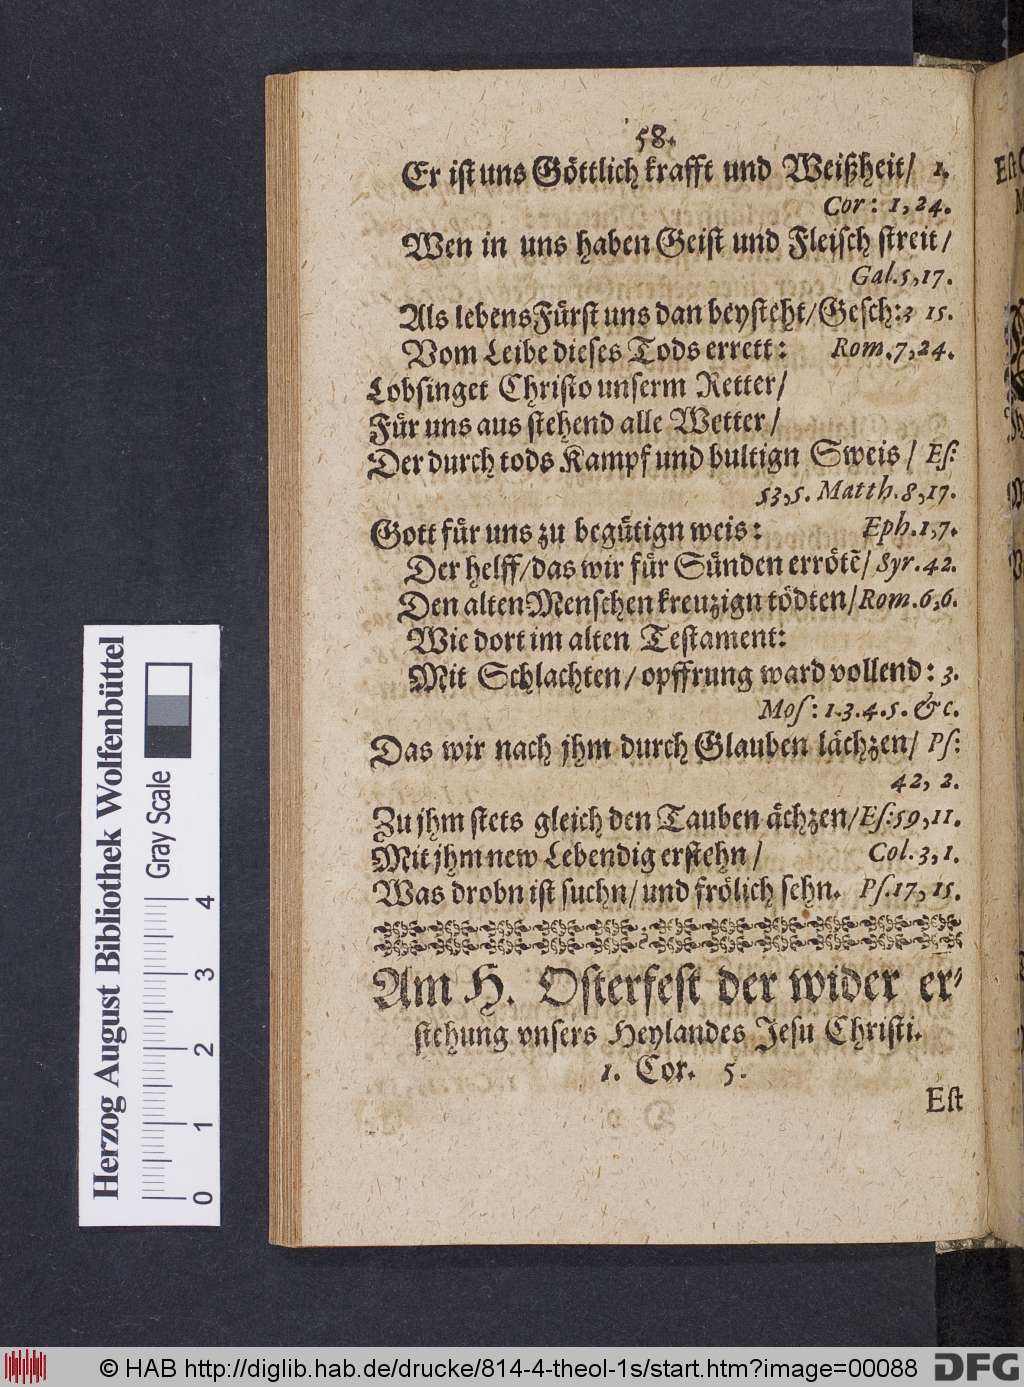 58.
Er ist uns Göttlich krafft und Weißheit/ 1.
Cor: 1,24.
Wen in uns haben Geist und Fleisch streit/
Gal.5,17.
Als lebensFürst uns dan beysteht/Gesch:3 15.
Vom Leibe dieses Tods errett: Rom.7,24.
Lobsinget Christo unserm Retter/
Für uns aus stehend alle Wetter/
Der durch tods Kampf und bultign Sweis/ Eſ:
53,5. Matth.8,17.
Gott für uns zu begütign weis: Eph.1,7.
Der helff/das wir für Sünden errötẽ/ Syr.42.
Den alten Menschen kreuzign tödten/Rom.6,6.
Wie dort im alten Testament:
Mit Schlachten/opffrung ward vollend: 3.
Moſ: 1.3.4.5. &c.
Das wir nach jhm durch Glauben lächzen/ Pſ:
42, 2.
Zu jhm stets gleich den Tauben ächzen/Eſ:59,11.
Mit jhm new Lebendig erstehn/ Col.3,1.
Was drobn ist suchn/und frölich sehn. Pſ.17,15.
Am H. Osterfest der wider er-
stehung vnsers Heylandes Jesu Christi.
1. Cor. 5.
Eſt
Herzog August Bibliothek Wolfenbüttel
Gray Scale
0 1 2 3 4
© HAB http://diglib.hab.de/drucke/814-4-theol-1s/start.htm?image=00088
DFG